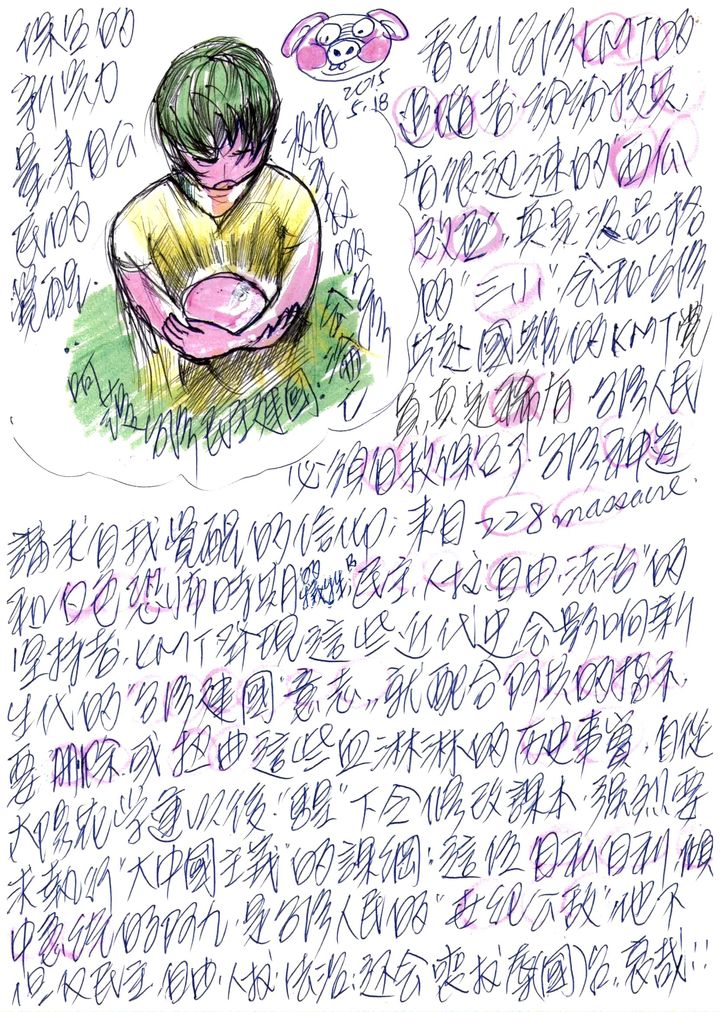 保台的
新勢力
量,來自公
民的
覺醒
2015
5.18
沒有
看到台灣KMT的
追隨者,紛紛投共,
有很迅速的西瓜
效應,真是沒品格
的"三小"会和台灣
共赴國難的KMT党
員,真是稀有 台灣人民
阿 台灣民主建國
必須自救保台了,台灣神道
講求自我覺醒的信仰;來自228 massacre.
和白色恐怖時期的犧牲,"民主.人权.自由.法治"的
坚持者.KMT發現這些近代史会影响新
生代的"台灣建國"意志,就配合阿共的指示,
要刪除或扭曲這些血淋淋的历史事實,自從
太陽花学運以後,"馬"下令修改課本,強烈要
求執行"大中國主義"的課綱;這位自私自利傾
中 的阿九,是台灣人民的"世紀公敵"他不
但反民主.自由.人权.法治,还会喪权辱(國)台,哀哉!!